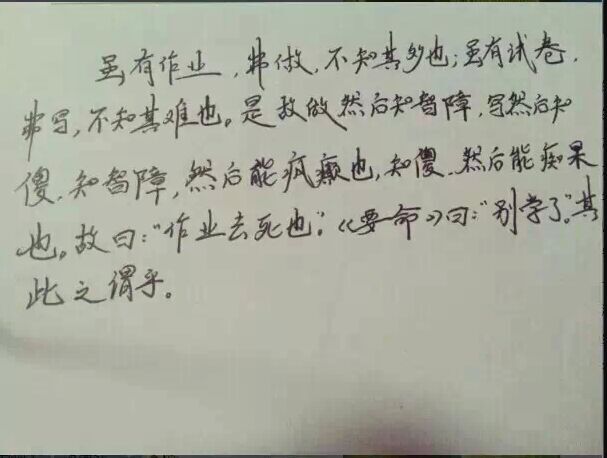 虽有作业，弗做，不知其多也；虽有试卷，
弗写，不知其难也。是故做然后知智障，写然后知
傻。知智障，然后能疯癫也，知傻，然后能痴呆
也。故曰：“作业去死也”。《要命》曰：“别学了”。其
此之谓乎。